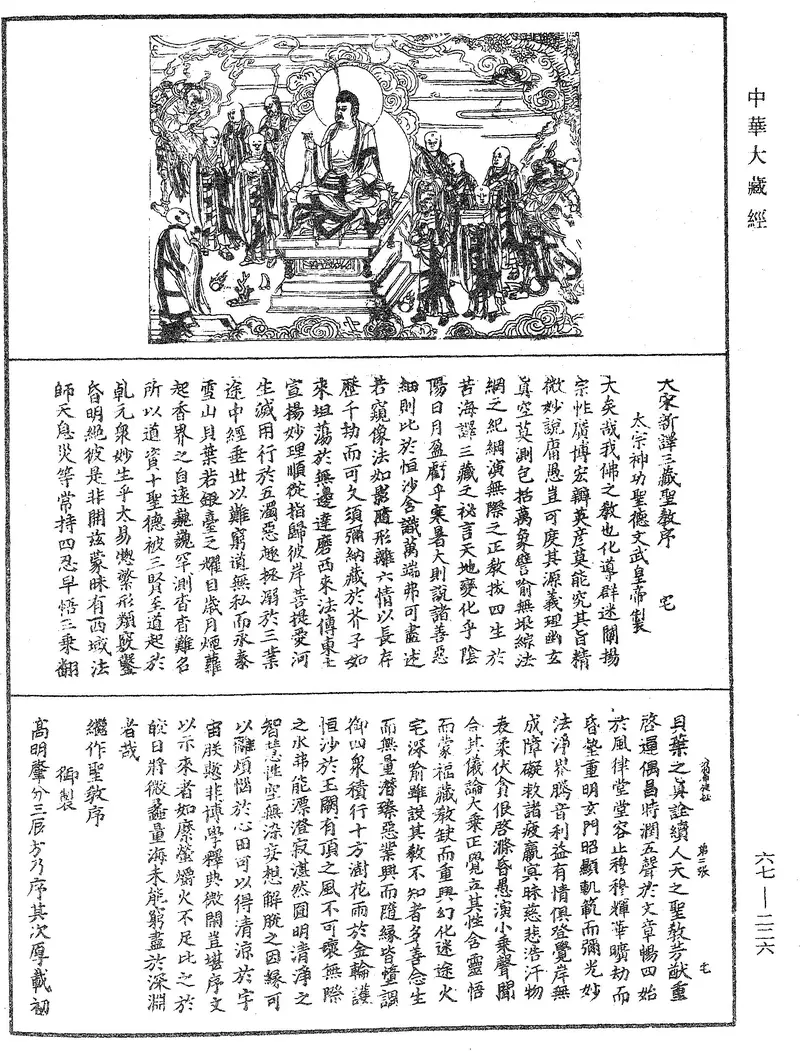 中華大藏經
大宋新譯三藏聖教序　宅
太宗神功聖德文武皇帝製
大矣哉我佛之教也化導群迷闡揚
宗性廣博宏辯英彥莫能究其旨精
微妙說庸愚豈可度其源義理幽玄
真空莫測包括萬象譬喻無垠綜法
網之紀綱演無際之正教拔四生於
苦海譯三藏之祕言天地變化乎陰
陽日月盈虧乎寒暑大則說諸善惡
細則比於恒沙含識萬端弗可盡述
若窺像法如影隨形離六情以長存
歷千劫而可久須彌納藏於芥子如
來坦蕩於無邊達磨西來法傳東土
宣揚妙理順從指歸彼岸菩提愛河
生滅用行於五濁惡趣拯溺於三業
途中經垂世以難窮道無私而永泰
雪山貝葉若銀臺之耀目歲月煙蘿
起香界之自遠巍巍罕測杳杳難名
所以道資十聖德被三賢至道起於
乹元眾妙生乎太易惣繁形類竅鑿
昏明絕彼是非開茲蒙昧有西域法
師天息災等常持四忍早悟三乘翻
第二張　宅
貝葉之真詮續人天之聖教芳猷重
啓運偶昌時潤五聲於文章暢四始
於風律堂堂容止穆穆輝華曠劫而
昏墊重明玄門昭顯軌範而彌光妙
法淨界騰音利益有情俱登覺岸無
成障礙救諸疲羸冥昧慈悲浩汗物
表柔伏貪佷啓滌昏愚演小乘聲聞
合其儀論大乘正覺立其性含靈悟
而蒙福藏教缺而重興幻化迷途火
宅深喻雖設其教不知者多善念生
而無量潛臻惡業興而隨緣皆墮調
御四眾積行十方澍花雨於金輪護
恒沙於玉闕有頂之風不可壞無際
之水弗能漂澄寂湛然圓明清淨之
智慧性空無染妄想解脫之因緣可
以離煩惱於心田可以得清涼於宇
宙朕慙非博學釋典微閑豈堪序文
以示來者如縻螢爝火不足比之於
皎日將微蠡量海未能窮盡於深淵
者哉
繼作聖教序
御製
高明肇分三辰方乃序其次厚載初
六七—二二六